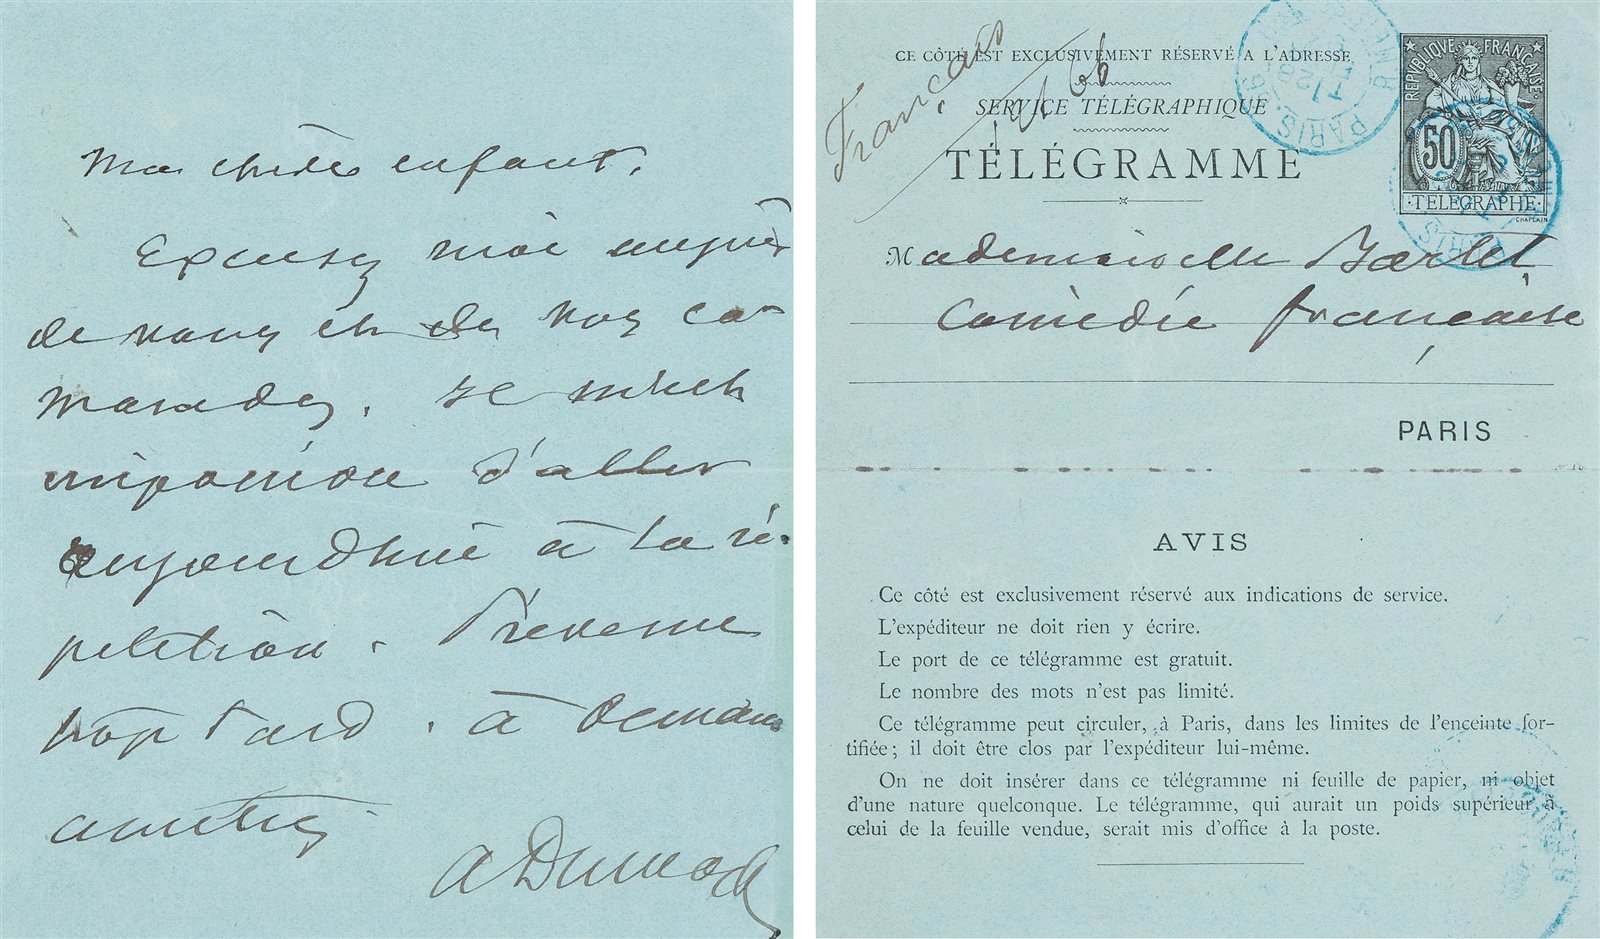 Ma chère enfant,
Excusez moi auprès
de vous et de vos ca-
marades. Il m'est
impossible d'aller
aujourdhui à la ré-
pétition. Prévenu
trop tard. à demain
amitiés
A Dumas f
CE CÔTÉ EST EXCLUSIVEMENT RÉSERVÉ A L'ADRESSE
Français
SERVICE TÉLÉGRAPHIQUE
TÉLÉGRAMME
REPUBLIQUE FRANÇAISE
50
TELEGRAPHE
CHAPLAIN
PARIS
PARIS
Mademoiselle Bartet
Comèdie française
PARIS
AVIS
Ce côté est exclusivement réservé aux indications de service.
L'expéditeur ne doit rien y écrire.
Le port de ce télégramme est gratuit.
Le nombre des mots n'est pas limité.
Ce télégramme peut circuler, à Paris, dans les limites de l'enceinte for-
tifiée ; il doit être clos par l'expéditeur lui-même.
On ne doit insérer dans ce télégramme ni feuille de papier, ni objet
d'une nature quelconque. Le télégramme, qui aurait un poids supérieur à
celui de la feuille vendue, serait mis d'office à la poste.